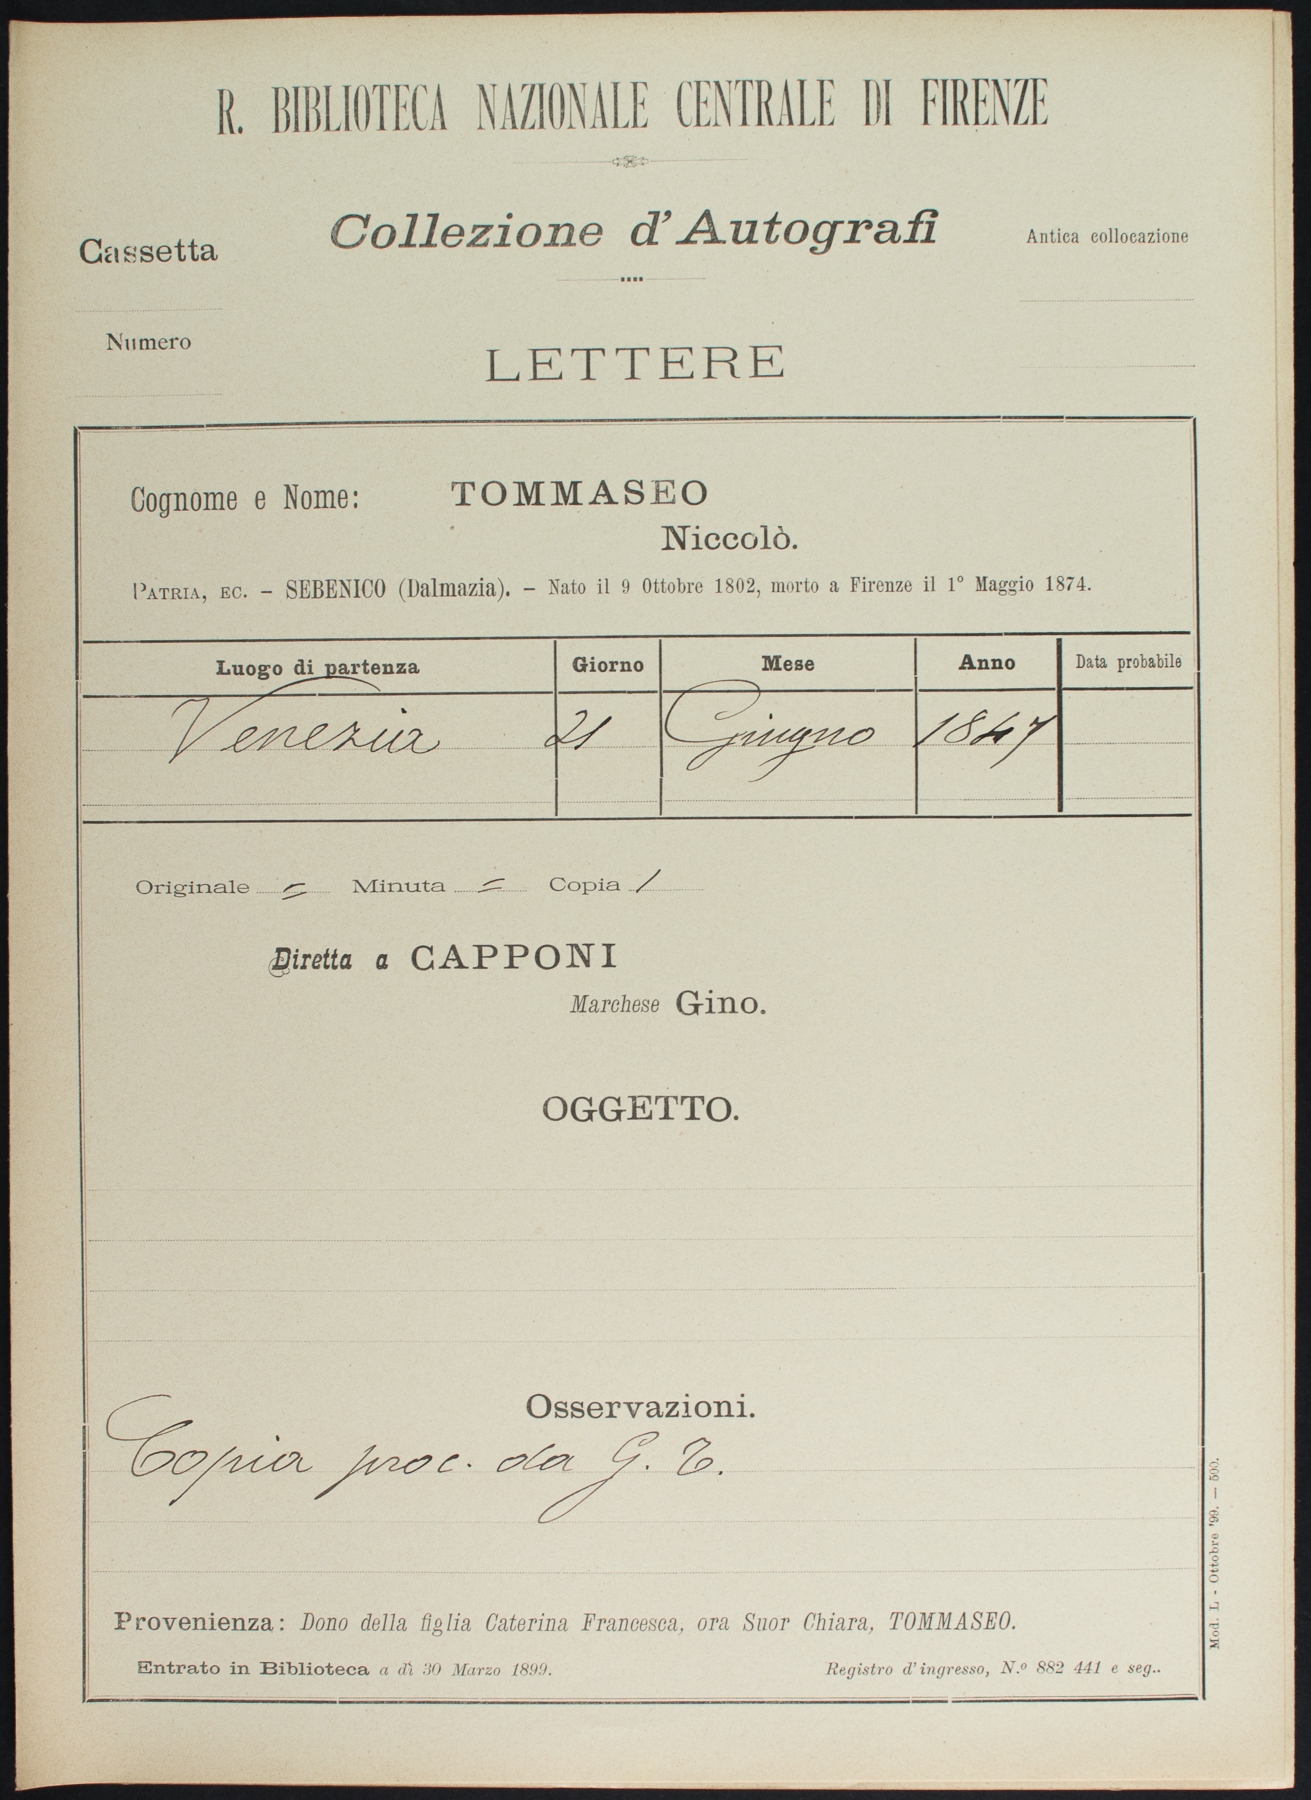 R. BIBLIOTECA NAZIONALE CENTRALE DI FIRENZE
Cassetta
Collezione d'Autografi
Antica collocazione
Numero
LETTERE
Cognome e Nome: TOMMASEO
Niccolò.
PATRIA, EC. – SEBENICO (Dalmazia). – Nato il 9 Ottobre 1802, morto a Firenze il 1° Maggio 1874.
Luogo di partenza Giorno Mese Anno Data probabile
Venezia 21 Giugno 1847
Originale = Minuta = Copia /
Diretta a CAPPONI
Marchese Gino.
OGGETTO.
Osservazioni.
Copia proc. da G. T.
Provenienza: Dono della figlia Caterina Francesca, ora Suor Chiara, TOMMASEO.
Entrato in Biblioteca a dì 30 Marzo 1899. Registro d'ingresso, N.º 882 441 e seg..
Mod. L - Ottobre '99. — 500.